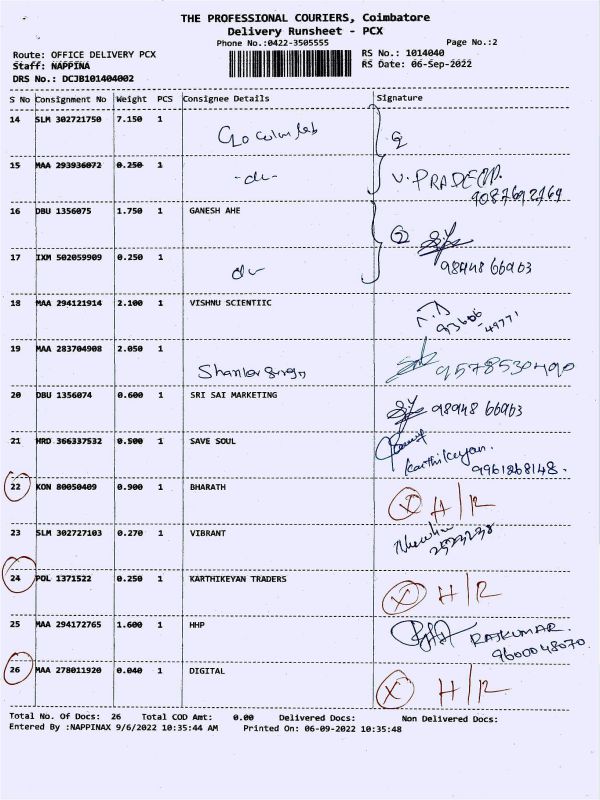 THE PROFESSIONAL COURIERS, Coimbatore
Delivery Runsheet - PCX
Phone No.:0422-3505555 Page No.:2
Route: OFFICE DELIVERY PCX RS No.: 1014040
Staff: NAPPINA RS Date: 06-Sep-2022
DRS No.: DCJB101404002
S No Consignment No Weight PCS Consignee Details Signature
14 SLM 302721750 7.150 1
15 MAA 293936072 0.250 1 -do- V. PRADEEP.
16 DBU 1356075 1.750 1 GANESH AHE
17 IXM 502059909 0.250 1 do 98948 66963
18 MAA 294121914 2.100 1 VISHNU SCIENTIIC
93606 -49771
19 MAA 283704908 2.050 1 9578530490
20 DBU 1356074 0.600 1 SRI SAI MARKETING 98948 66963
21 HRD 366337532 0.500 1 SAVE SOUL
Karthikeyan.
9961268148.
22 KON 80050409 0.900 1 BHARATH X H/R
23 SLM 302727103 0.270 1 VIBRANT
24 POL 1371522 0.250 1 KARTHIKEYAN TRADERS X H/R
25 MAA 294172765 1.600 1 HHP RAJKUMAR.
9600048070
26 MAA 278011920 0.040 1 DIGITAL X H/R
Total No. Of Docs: 26 Total COD Amt: 0.00 Delivered Docs: Non Delivered Docs:
Entered By :NAPPINAX 9/6/2022 10:35:44 AM Printed On: 06-09-2022 10:35:48